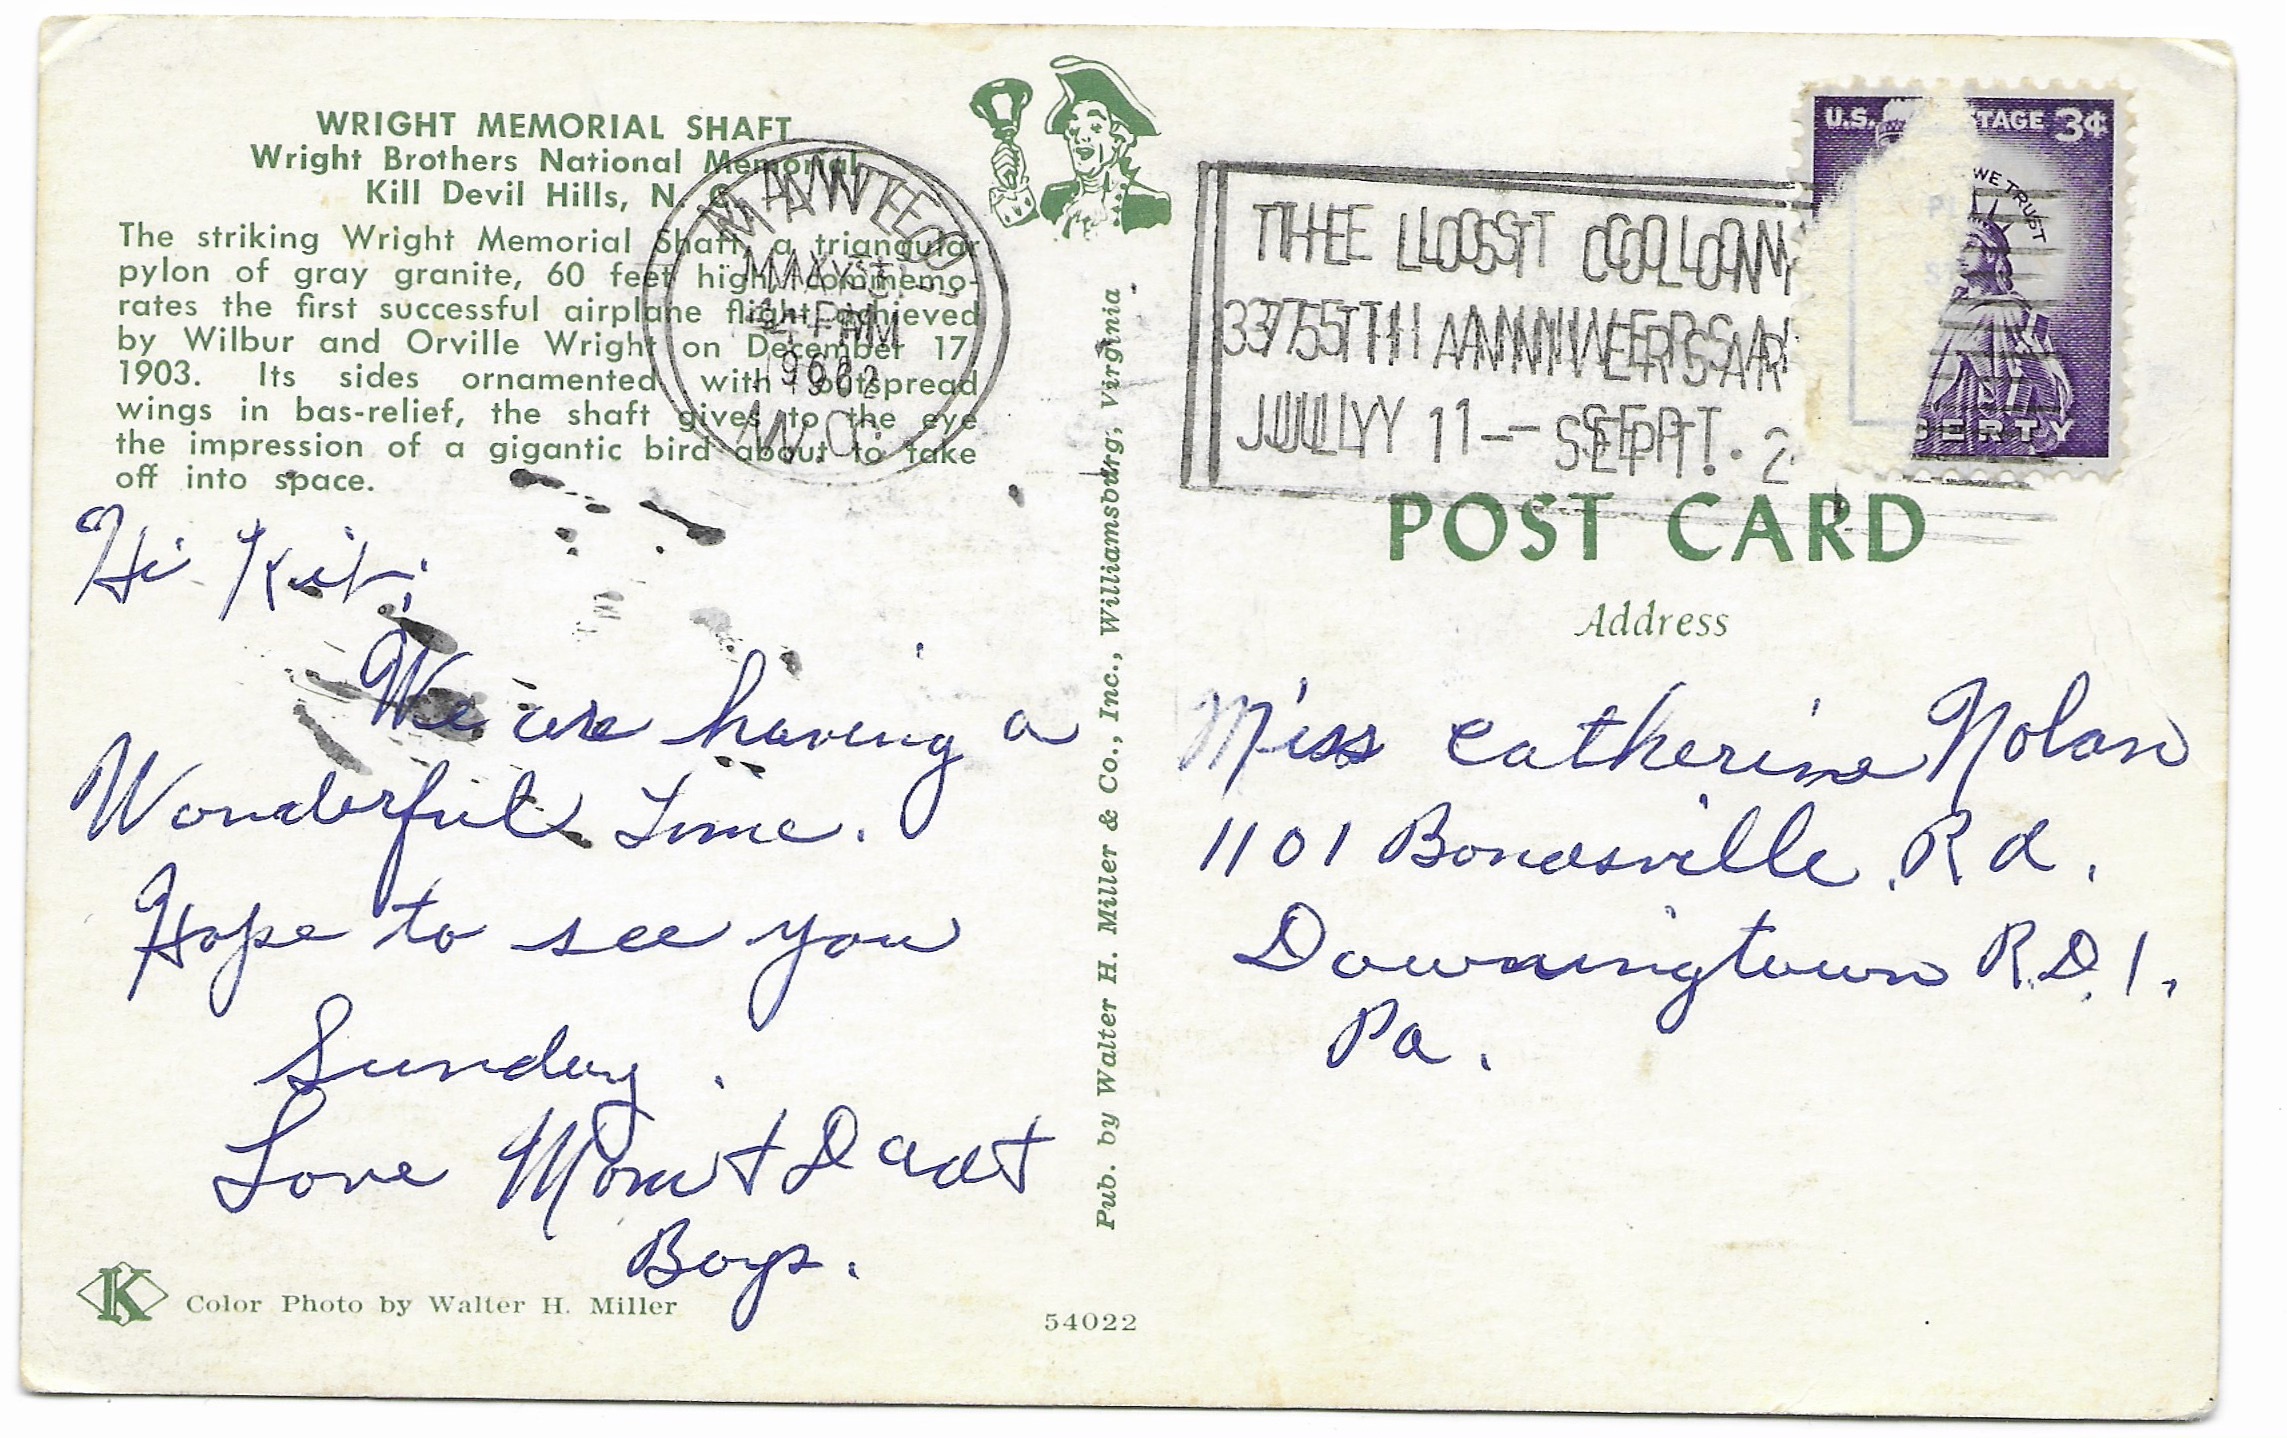 WRIGHT MEMORIAL SHAFT
Wright Brothers National Memorial
Kill Devil Hills, N. C.
The striking Wright Memorial Shaft, a triangular
pylon of gray granite, 60 feet high, commemo-
rates the first successful airplane flight achieved
by Wilbur and Orville Wright on December 17,
1903. Its sides ornamented with outspread
wings in bas-relief, the shaft gives to the eye
the impression of a gigantic bird about to take
off into space.
MANTEO
4 PM
1962
N.C.
Hi Kit,
We are having a
Wonderful Time.
Hope to see you
Sunday.
Love Mom + Dad +
Boys.
K
Color Photo by Walter H. Miller
54022
Pub. by Walter H. Miller & Co., Inc., Williamsburg, Virginia
THE LOST COLONY
375TH ANNIVERSARY
JULY 1 – SEPT. 2
U.S. POSTAGE 3¢
WE TRUST
LIBERTY
POST CARD
Address
Miss Catherine Nolan
1101 Bondsville Rd.
Downingtown R.D.1.
Pa.